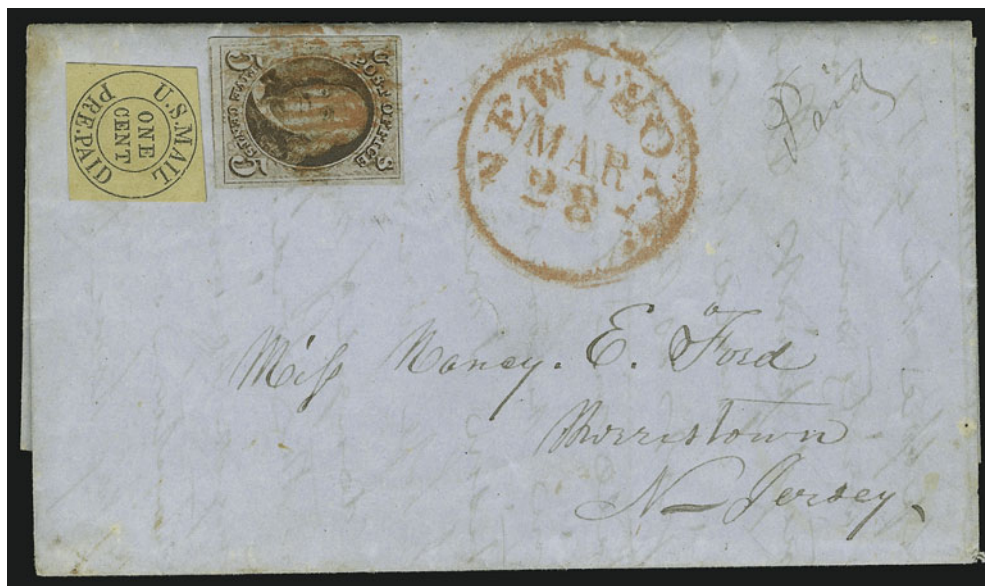 U.S.MAIL
ONE
CENT
PRE.PAID
POST OFFICE
5 5
NEW-YORK
MAR
28
Paid
Miſs Nancy. E. Ford
Morristown
N– Jersey.